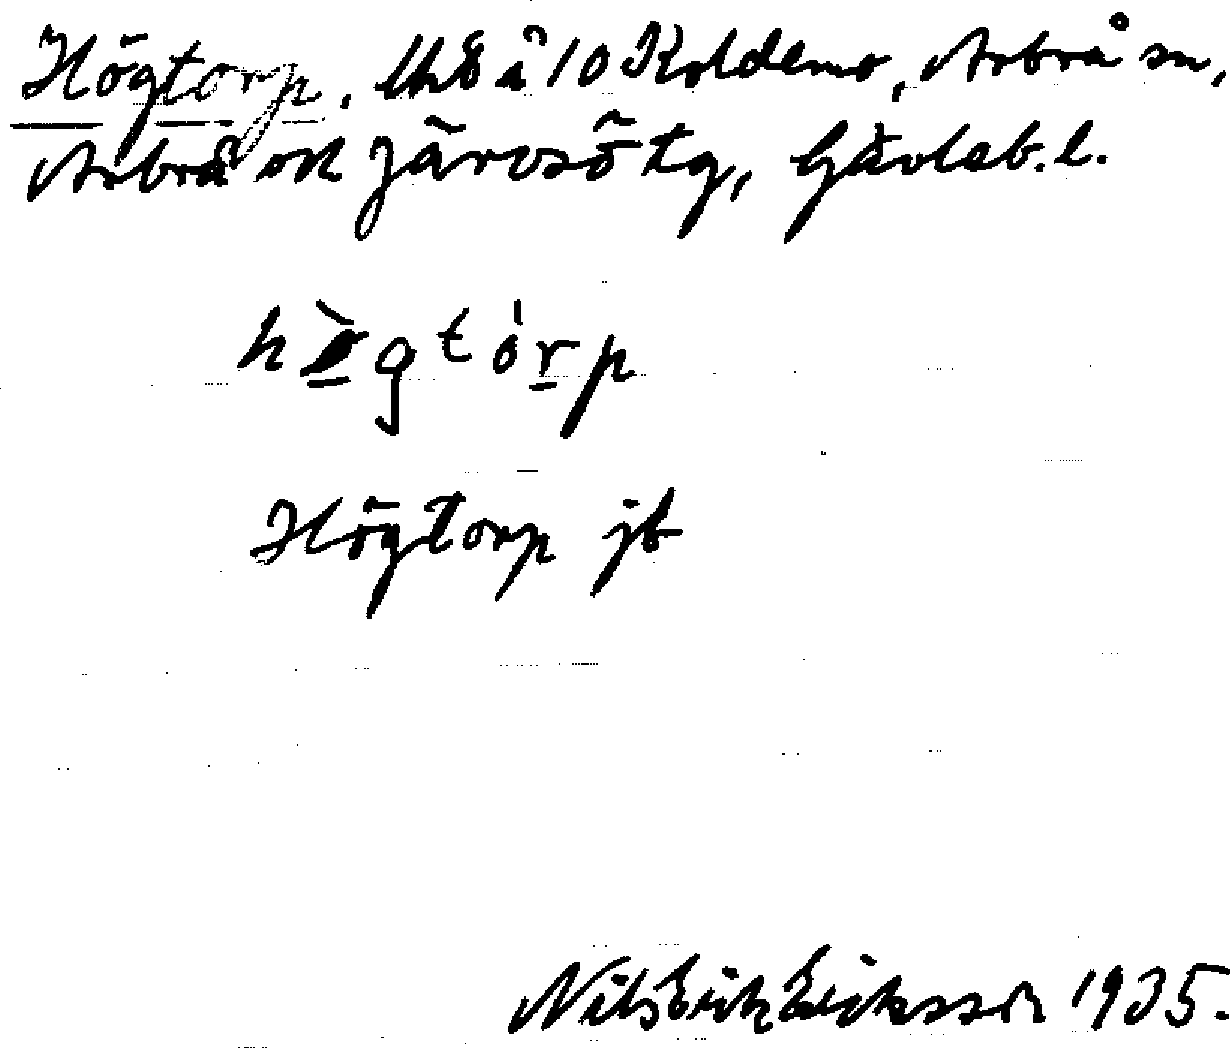 Högtorp, lht å 10 Koldemo, Arbrå sn,
Arbrå ok Järvsö tg, Gävleb. l.
hø̀gtórp
Högtorp jb
Nils Erik Eriksson 1935.